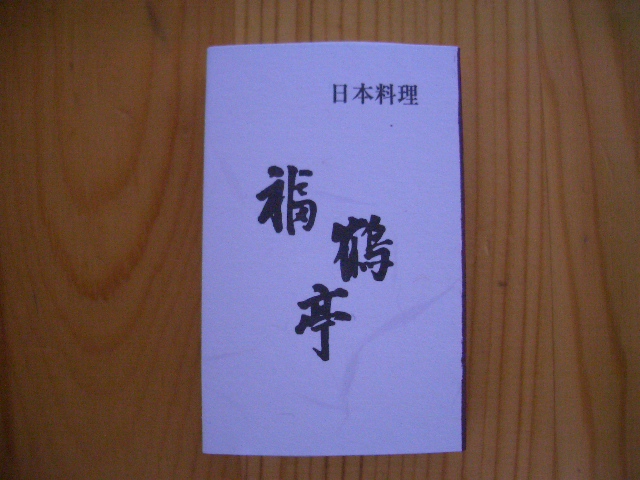 日本料理
福鶴亭